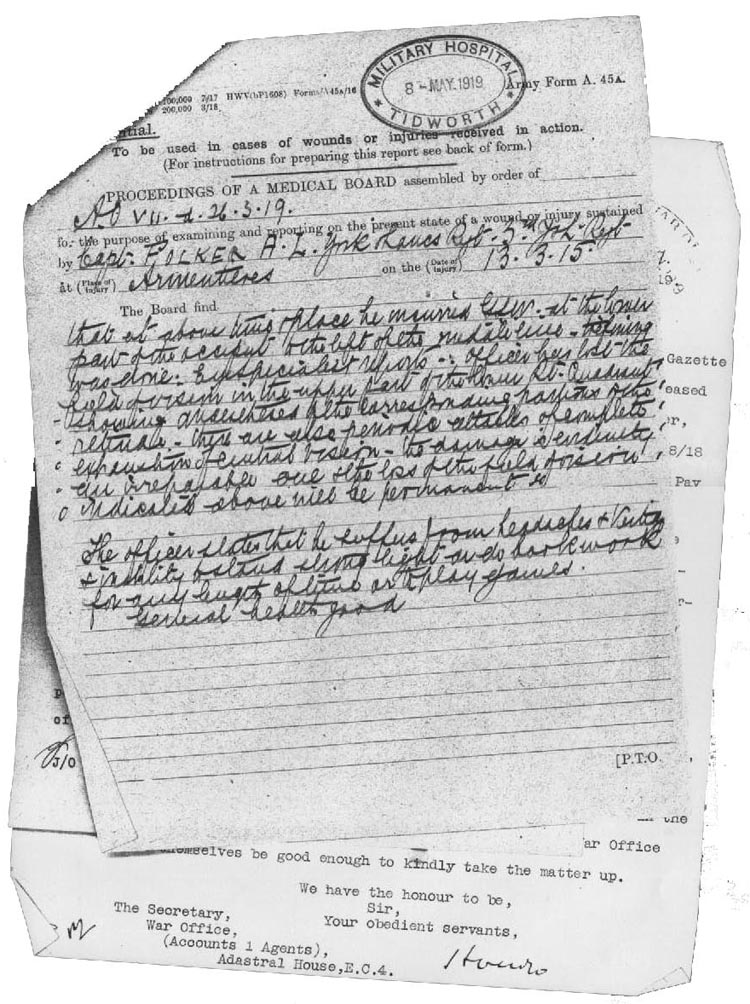 MILITARY HOSPITAL
8 - MAY. 1919
TIDWORTH
Army Form A. 45A.
100,000 7/17 HWV(P1608) Forms/A45a/16
200,000 3/18.
ntial.
To be used in cases of wounds or injuries received in action.
(For instructions for preparing this report see back of form.)
PROCEEDINGS OF A MEDICAL BOARD assembled by order of
A.O VII. d. 26.3.19.
for the purpose of examining and reporting on the present state of a wound or injury sustained
by Capt. FOLKER A. L. York Lancs Regt.
at (Place of Injury) Armentieres on the (Date of Injury) 13. 3. 15.
The Board find
that at above time & place he incurred GSW. at the lower
part of the occiput to the left of the middle line - trephining
was done. Eye specialist reports -: officer has lost the
field of vision in the upper part of the lower Rt. Quadrant
showing of the corresponding portions of the
retinae - there are also periodic attacks of complete
of central vision - the damage is evidently
an irreparable one & the loss of the field of vision
indicated above will be permanent
The officer states that he suffers from headaches &
& inability to stand strong light or do book work
for any length of time or to play games.
General health good
[P.T.O.
Gazette
eased
er,
8/18
Pav
of
5/0
in the
ar Office
themselves be good enough to kindly take the matter up.
We have the honour to be,
Sir,
Your obedient servants,
The Secretary,
War Office,
(Accounts 1 Agents),
Adastral House, E.C.4.